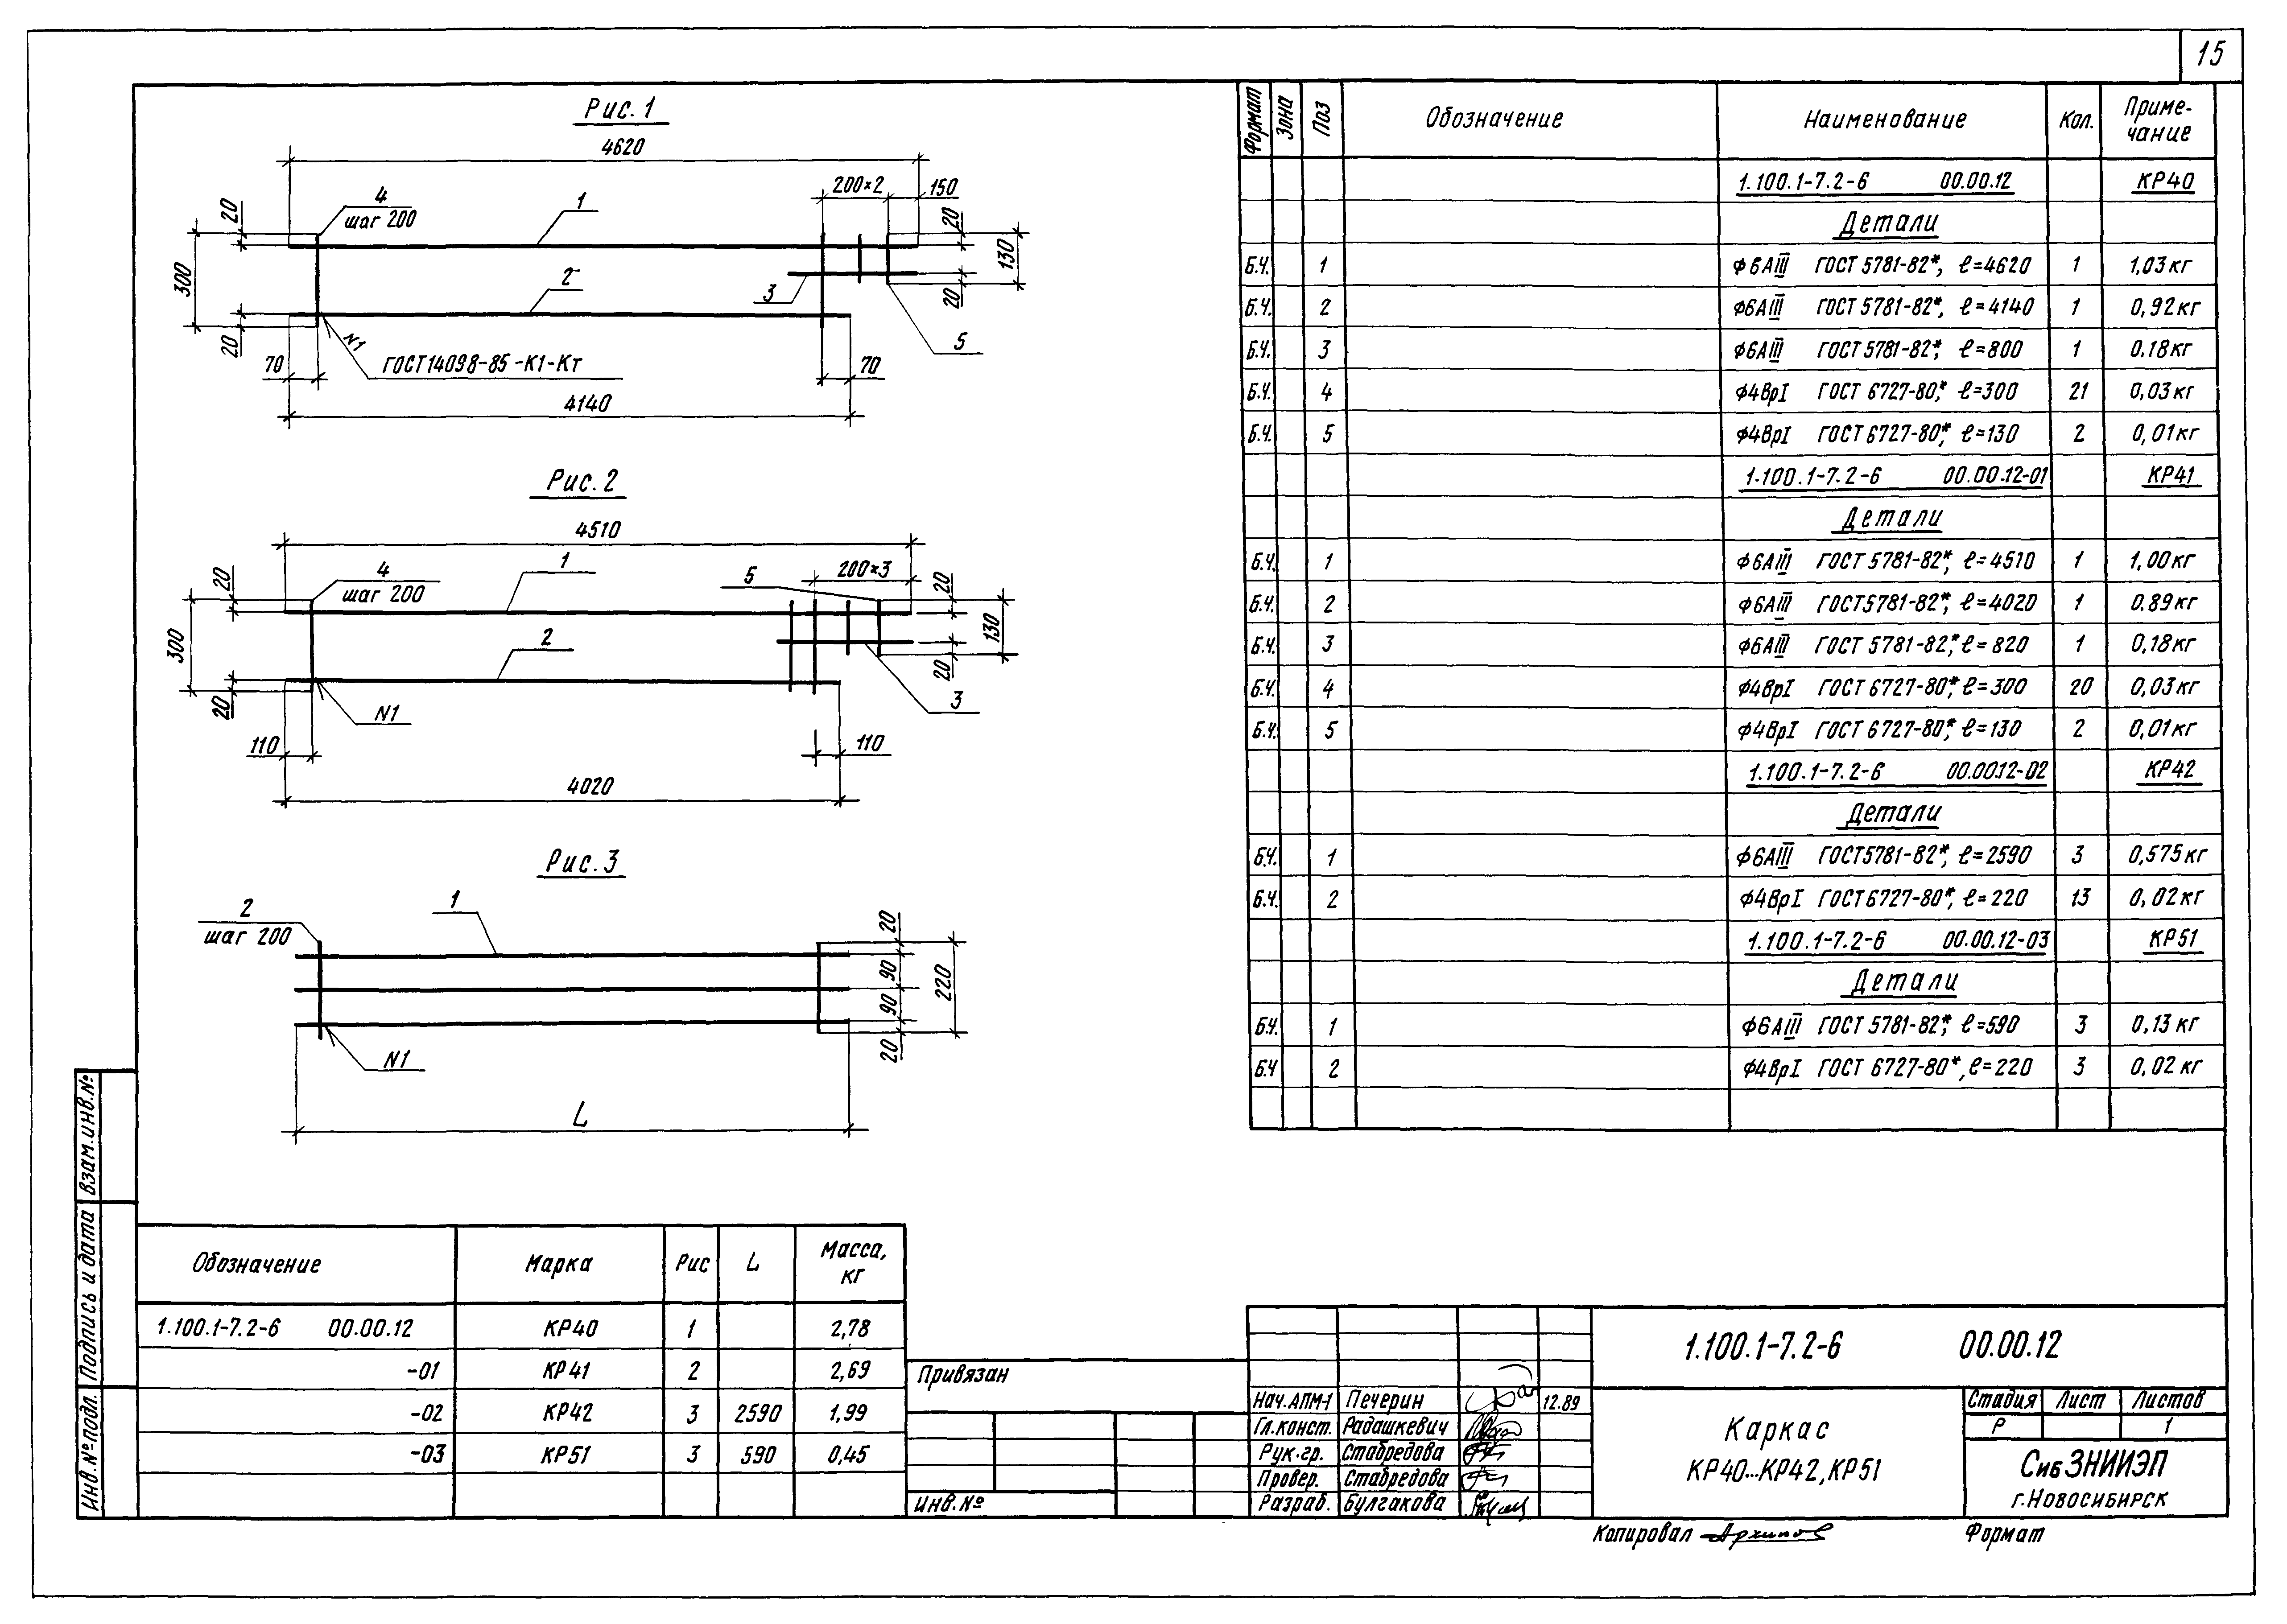 15
Рис. 1
4620
200×2
150
4
шаг 200
1
20
20
300
130
2
3
20
20
N1
5
70
ГОСТ14098-85-К1-Кт
70
4140
Рис. 2
4510
4
шаг 200
1
5
200×3
20
20
300
130
2
20
20
3
N1
110
110
4020
Рис. 3
2
шаг 200
1
20
90
90
20
220
N1
L
Формат Зона Поз Обозначение Наименование Кол. Приме-
чание
1.100.1-7.2-6 00.00.12 КР40
Детали
Б.Ч. 1 ф6АIII ГОСТ 5781-82*, ℓ=4620 1 1,03кг
Б.Ч. 2 ф6АIII ГОСТ 5781-82*, ℓ=4140 1 0,92кг
Б.Ч. 3 ф6АIII ГОСТ 5781-82*, ℓ=800 1 0.18кг
Б.Ч. 4 ф4ВрI ГОСТ 6727-80*, ℓ=300 21 0,03кг
Б.Ч. 5 ф4ВрI ГОСТ 6727-80*, ℓ=130 2 0,01кг
1.100.1-7.2-6 00.00.12-01 КР41
Детали
Б.Ч. 1 ф6АIII ГОСТ 5781-82*, ℓ=4510 1 1,00кг
Б.Ч. 2 ф6АIII ГОСТ5781-82*, ℓ=4020 1 0.89кг
Б.Ч. 3 ф6АIII ГОСТ 5781-82*, ℓ=820 1 0,18кг
Б.Ч. 4 ф4ВрI ГОСТ 6727-80*, ℓ=300 20 0,03кг
Б.Ч. 5 ф4ВрI ГОСТ 6727-80*, ℓ=130 2 0,01кг
1.100.1-7.2-6 00.00.12-02 КР42
Детали
Б.Ч. 1 ф6АIII ГОСТ5781-82*, ℓ=2590 3 0,575кг
Б.Ч. 2 ф4ВрI ГОСТ6727-80*, ℓ=220 13 0,02кг
1.100.1-7.2-6 00.00.12-03 КР51
Детали
Б.Ч. 1 ф6АIII ГОСТ 5781-82*, ℓ=590 3 0,13кг
Б.Ч 2 ф4ВрI ГОСТ 6727-80*, ℓ=220 3 0,02кг
Взам.инв.№
Подпись и дата
Инв.№подл.
Обозначение Марка Рис L Масса,
кг
1.100.1-7.2-6 00.00.12 КР40 1 2,78
-01 КР41 2 2,69
-02 КР42 3 2590 1,99
-03 КР51 3 590 0,45
Привязан
Инв.№
Нач.АПМ-1 Печерин 12.89
Гл.конст. Радашкевич
Рук.гр. Стабредова
Провер. Стабредова
Разраб. Булгакова
1.100.1-7.2-6 00.00.12
Каркас
КР40...КР42,КР51
Стадия Лист Листов
Р 1
СибЗНИИЭП
г.Новосибирск
Копировал Архипов
Формат